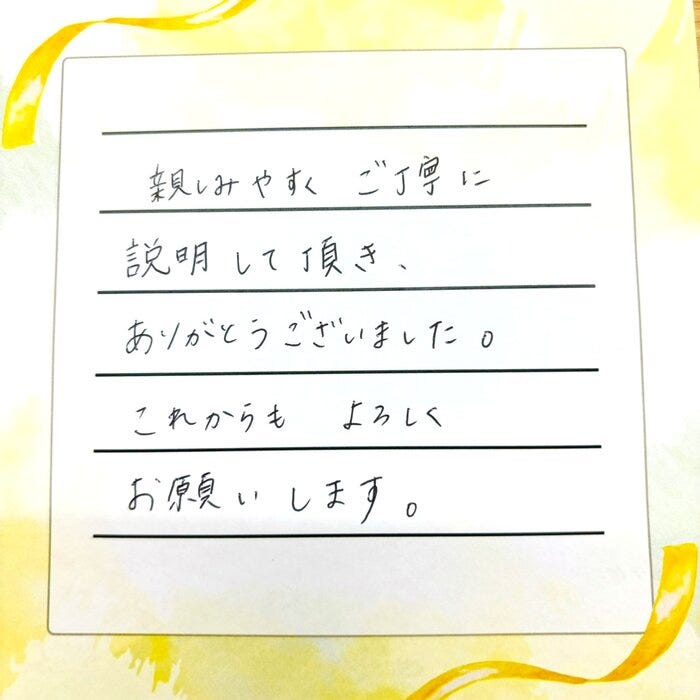 親しみやすく ご丁寧に
説明して頂き、
ありがとうございました。
これからも よろしく
お願いします。